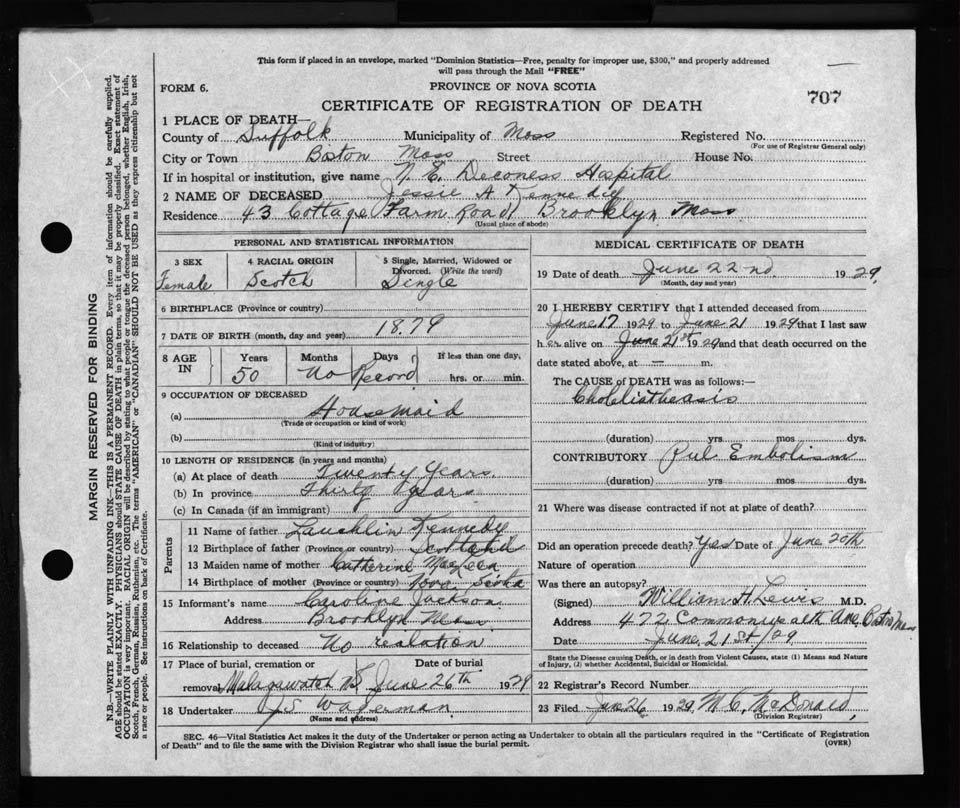 This form if placed in an envelope, marked "Dominion Statistics—Free, penalty for improper use, $300," and properly addressed
will pass through the Mail "FREE"
FORM 6.
PROVINCE OF NOVA SCOTIA
707
CERTIFICATE OF REGISTRATION OF DEATH
1 PLACE OF DEATH—
County of Suffolk Municipality of Mass Registered No.
(For use of Registrar General only)
City or Town Boston Mass Street House No.
If in hospital or institution, give name N. E. Deconess Hospital
2 NAME OF DECEASED Jessie A Kennedy
Residence 43 Cottage Farm Road Brooklyn Mass
(Usual place of abode)
PERSONAL AND STATISTICAL INFORMATION
3 SEX
Female
4 RACIAL ORIGIN
Scotch
5 Single, Married, Widowed or
Divorced. (Write the word)
Single
6 BIRTHPLACE (Province or country)
7 DATE OF BIRTH (month, day and year) 1879
8 AGE IN
Years Months Days If less than one day,
50 No Record hrs. or min.
9 OCCUPATION OF DECEASED
(a) Housemaid
(Trade or occupation or kind of work)
(b)
(Kind of industry)
10 LENGTH OF RESIDENCE (in years and months)
(a) At place of death Twenty Years.
(b) In province Thirty Years
(c) In Canada (if an immigrant)
Parents
11 Name of father Lauchlin Kennedy
12 Birthplace of father (Province or country) Scotland
13 Maiden name of mother Catherine
14 Birthplace of mother (Province or country) Nova Scotia
15 Informant's name Caroline Jackson
Address Brooklyn Mass
16 Relationship to deceased No realation
17 Place of burial, cremation or Date of burial
removal Malagawatch NS June 26th 1929
18 Undertaker J. S. Waterman.
(Name and address)
MEDICAL CERTIFICATE OF DEATH
19 Date of death June 22nd. 1929.
(Month, day and year)
20 I HEREBY CERTIFY that I attended deceased from
June 17 1929 to June 21 1929 that I last saw
her alive on June 21st 1929 and that death occurred on the
date stated above, at — m.
The CAUSE of DEATH was as follows:—
Choleliatheasis
(duration) yrs mos dys.
CONTRIBUTORY Pul Embolism
(duration) yrs. mos. dys.
21 Where was disease contracted if not at place of death?
Did an operation precede death? Yes Date of June 20th
Nature of operation
Was there an autopsy?
(Signed) William H. Lewis M.D.
Address 472 Commonwealth Ave. Boston Mass
Date June 21st/29
State the Disease causing Death, or in death from Violent Causes, state (1) Means and Nature
of Injury, (2) whether Accidental, Suicidal or Homicidal.
22 Registrar's Record Number
23 Filed June 26 1929 M. C. McDonald,
(Division Registrar)
SEC. 46—Vital Statistics Act makes it the duty of the Undertaker or person acting as Undertaker to obtain all the particulars required in the "Certificate of Registration
of Death" and to file the same with the Division Registrar who shall issue the burial permit.
(OVER)
MARGIN RESERVED FOR BINDING
N.B.—WRITE PLAINLY WITH UNFADING INK—THIS IS A PERMANENT RECORD. Every item of information should be carefully supplied.
AGE should be stated EXACTLY. PHYSICIANS should STATE CAUSE OF DEATH in plain terms, so that it may be properly classified. Exact statement of
OCCUPATION is very important. RACIAL ORIGIN will be described by stating to what people or tongue the deceased person belonged, whether English, Irish,
Scotch, French, German, Russian, Ruthenian, etc. The terms "AMERICAN" or "CANADIAN" SHOULD NOT BE USED as they express citizenship but not
a race or people. See instructions on back of Certificate.